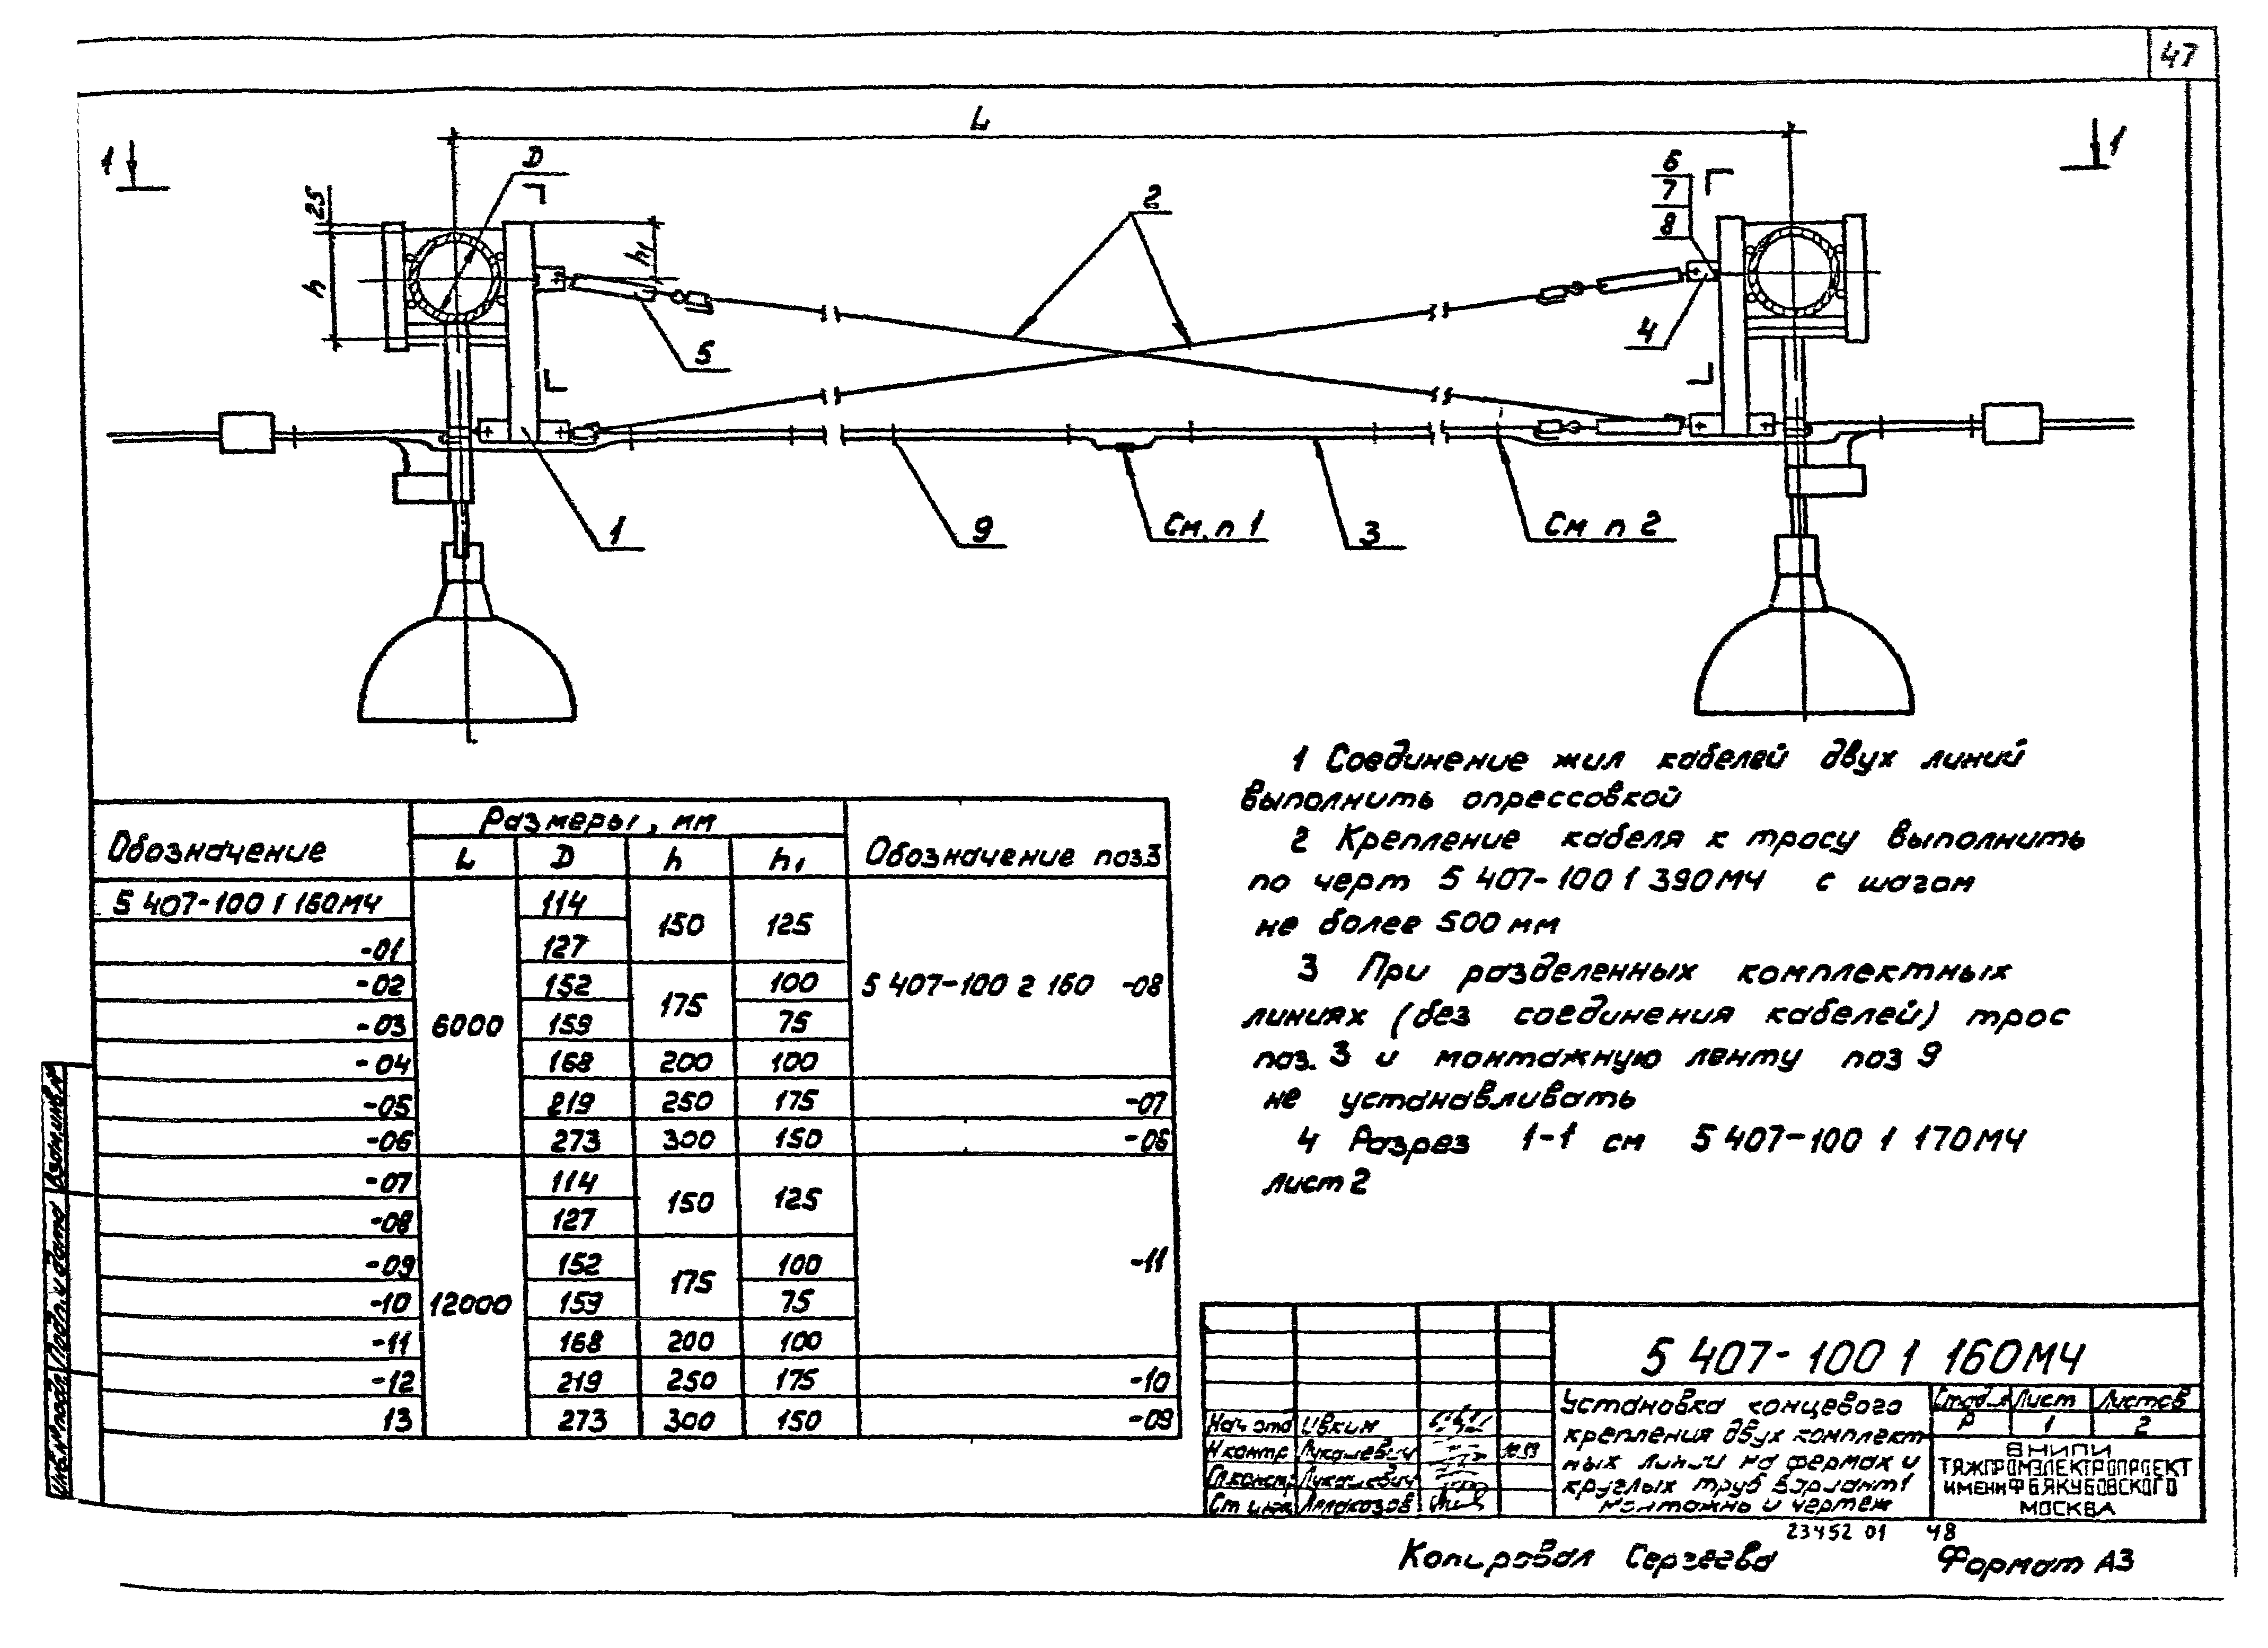 47
L
1
1
D
2
6
7
8
25
h
h₁
5
4
1
9
См. п 1
3
См п 2
1 Соединение жил кабелей двух линий
выполнить опрессовкой
2 Крепление кабеля к тросу выполнить
по черт 5 407-100 1 390МЧ с шагом
не более 500 мм
3 При разделенных комплектных
линиях (без соединения кабелей) трос
поз. 3 и монтажную ленту поз 9
не устанавливать
4 Разрез 1-1 см 5 407-100 1 170МЧ
лист 2
Обозначение Размеры, мм Обозначение поз.3
L D h h₁
5 407-100 1 160МЧ 6000 114 150 125 5 407-100 2 160 -08
-01 127
-02 152 175 100
-03 159 75
-04 168 200 100
-05 219 250 175 -07
-06 273 300 150 -06
-07 12000 114 150 125 -11
-08 127
-09 152 175 100
-10 159 75
-11 168 200 100
-12 219 250 175 -10
13 273 300 150 -09
Взам.инв.№
Подп. и дата
Инв.№ подл.
5 407-100 1 160МЧ
Установка концевого
крепления двух комплект
ных линий на фермах и
круглых труб Вариант 1
Монтажный чертеж
Стад Лист Листов
Р 1 2
ВНИПИ
ТЯЖПРОМЭЛЕКТРОПРОЕКТ
ИМЕНИ Ф Б ЯКУБОВСКОГО
МОСКВА
Нач отд Ивкин
Н контр Лукашевич
Гл.констр Лукашевич
Ст инж
23452 01 48
Копировал Сергеева Формат А3